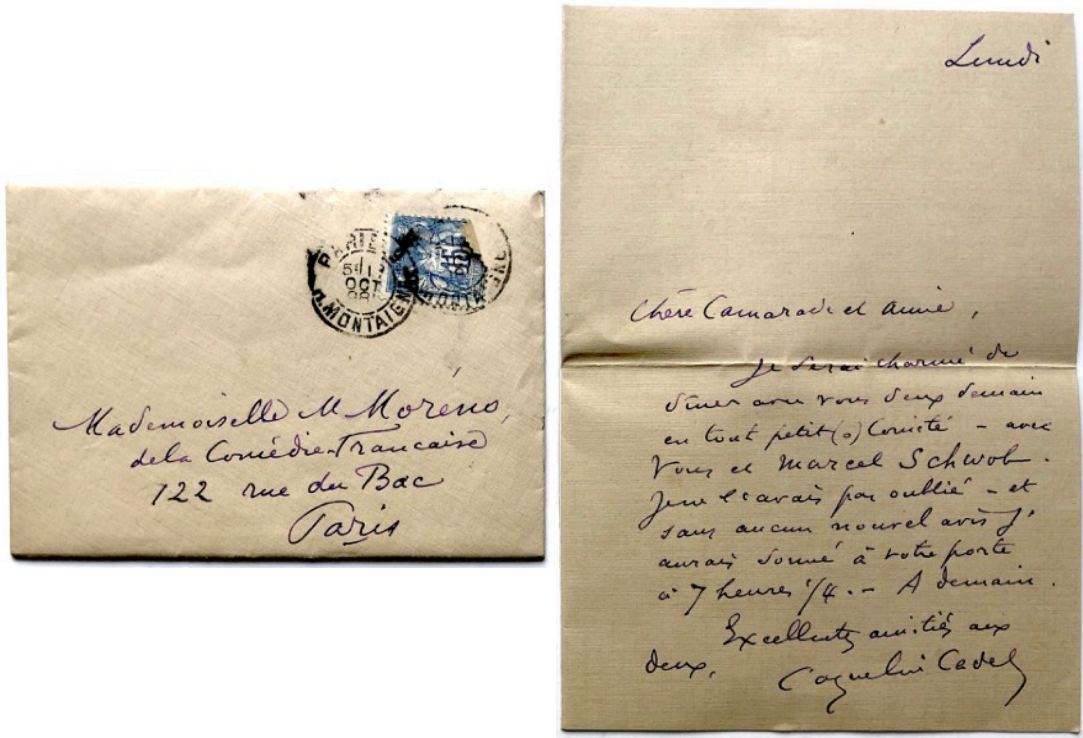 PARIS
5E 17
OCT
98
R. MONTAIGNE
MONTAIGNE
Mademoiselle M Moréno,
de la Comédie-Française
122 rue du Bac
Paris
Lundi
Chère Camarade et amie,
Je serai charmé de
dîner avec vous deux demain
en tout petit (o) Comité – avec
Vous et Marcel Schwob.
Je ne l'avais pas oublié – et
sans aucun nouvel avis j'
aurais sonné à votre porte
à 7 heures 1/4. – A demain.
Excellentes amitiés aux
deux,
Coquelin Cadet